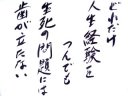 どれだけ
人生経験を
つんでも
生死の問題には
歯が立たない